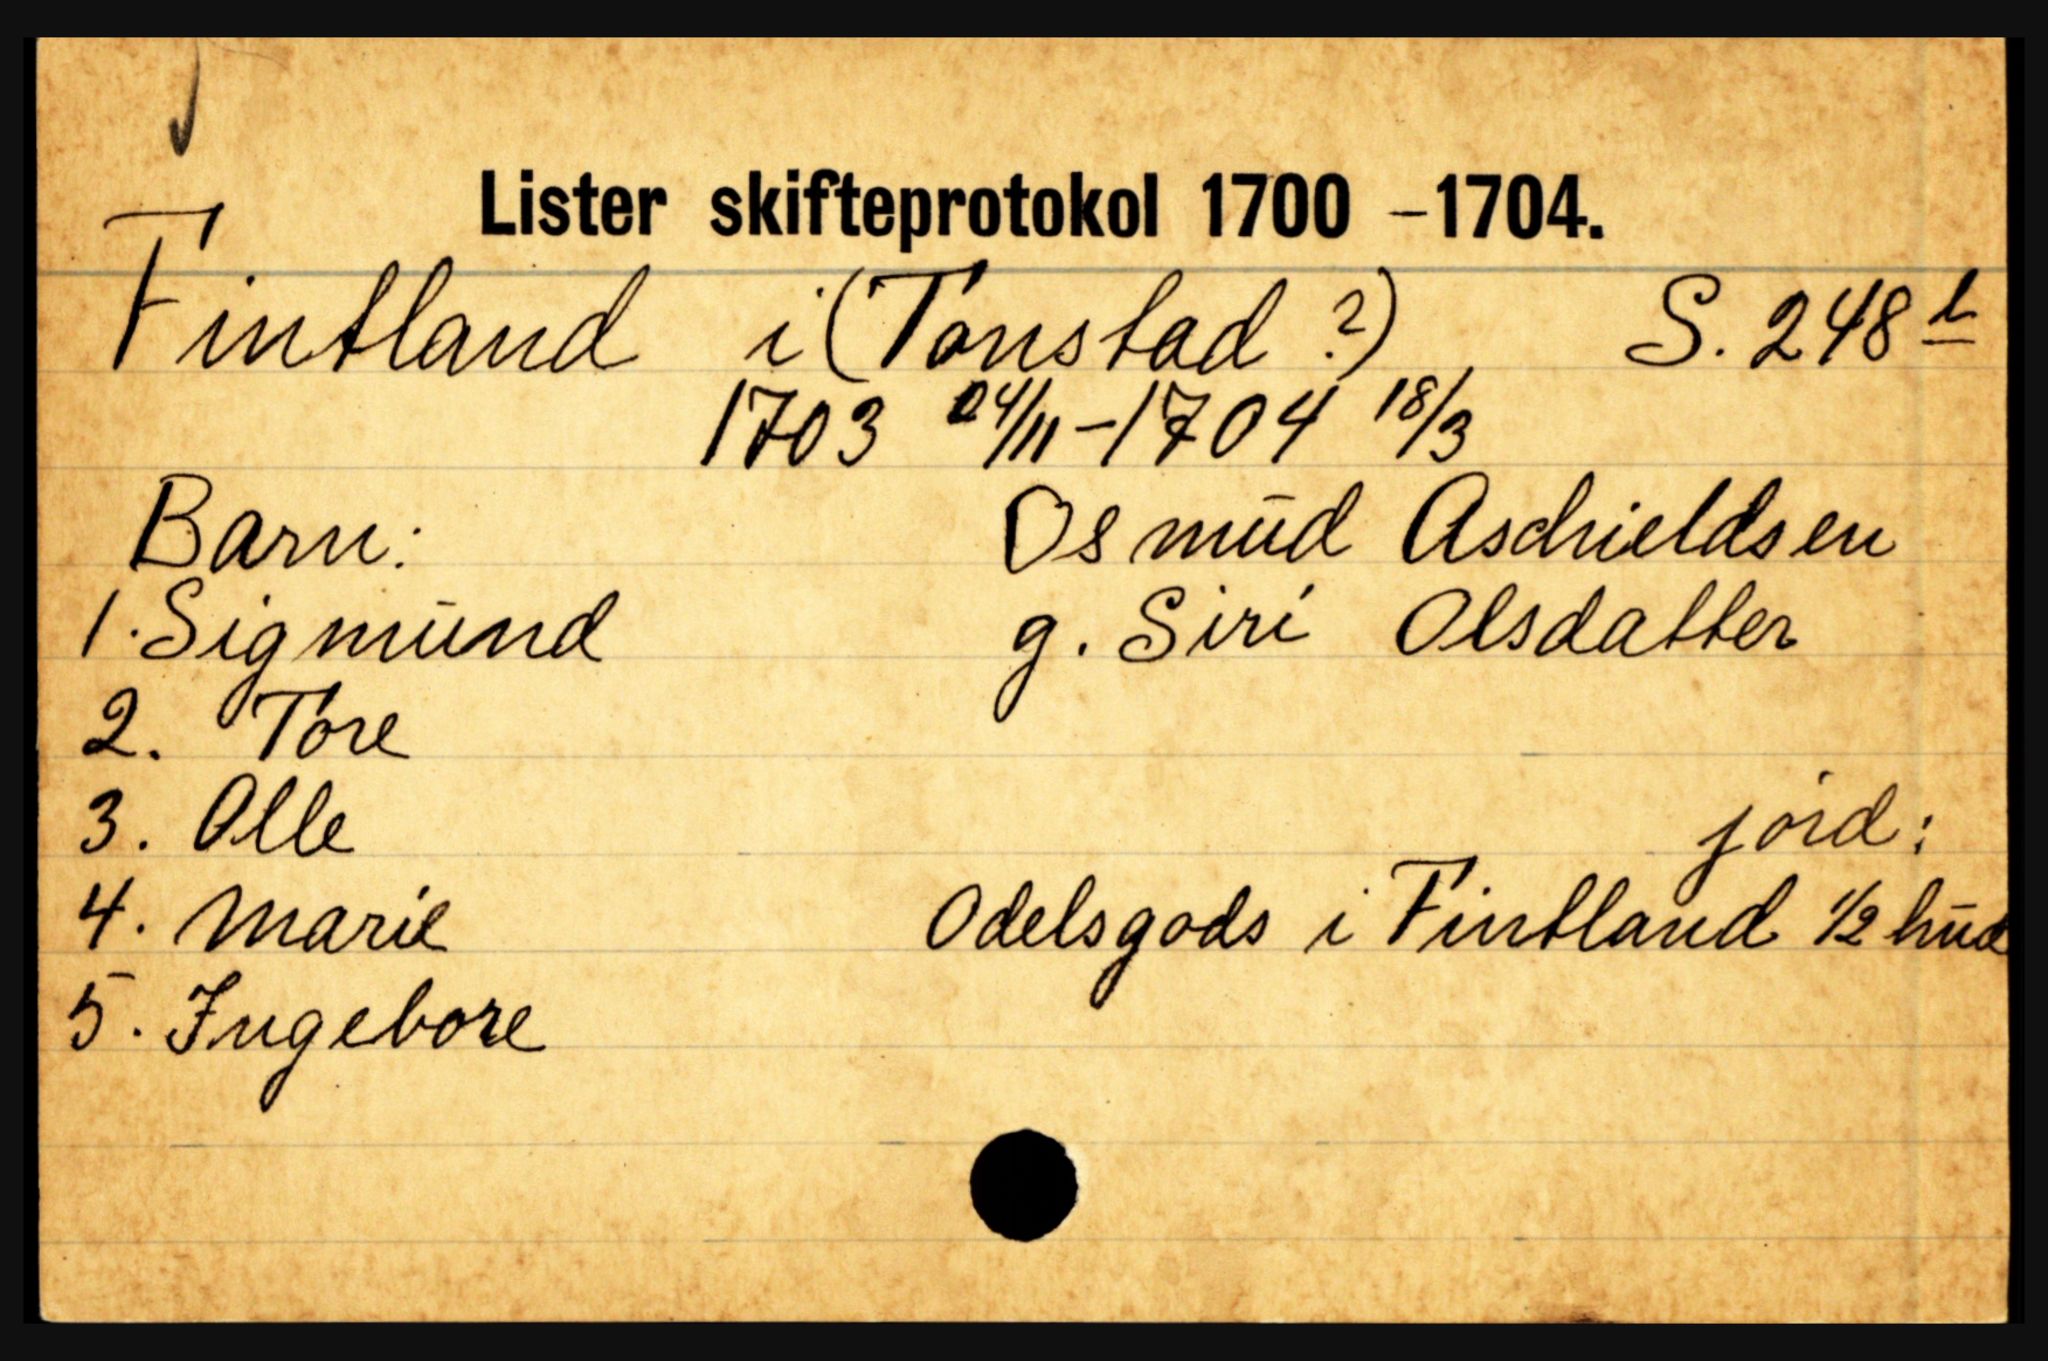 Lister skifteprotokol 1700 – 1704.
Fintland i (Tonstad ?) S. 248 b
1703 24/11 – 1704 18/3
Barn: Osmūd Aschieldsen
1. Sigmūnd g. Siri Olsdatter
2. Tore
3. Olle jord:
4. Marie Odelsgods i Fintland 1/2 hūd
5. Ingebore